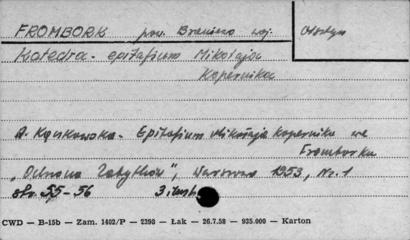 FROMBORK pow. Braniewo woj. Olsztyn
Katedra - epitafium Mikołaja
Kopernika
A. Kąsinowska - Epitafium Mikołaja Kopernika we
Fromborku
„Ochrona Zabytków", Warszawa 1953, Nr. 1
str. 55-56 3 ilustr.
CWD — B-15b — Zam. 1402/P — 2393 — Łak — 26.7.58 — 935.000 — Karton